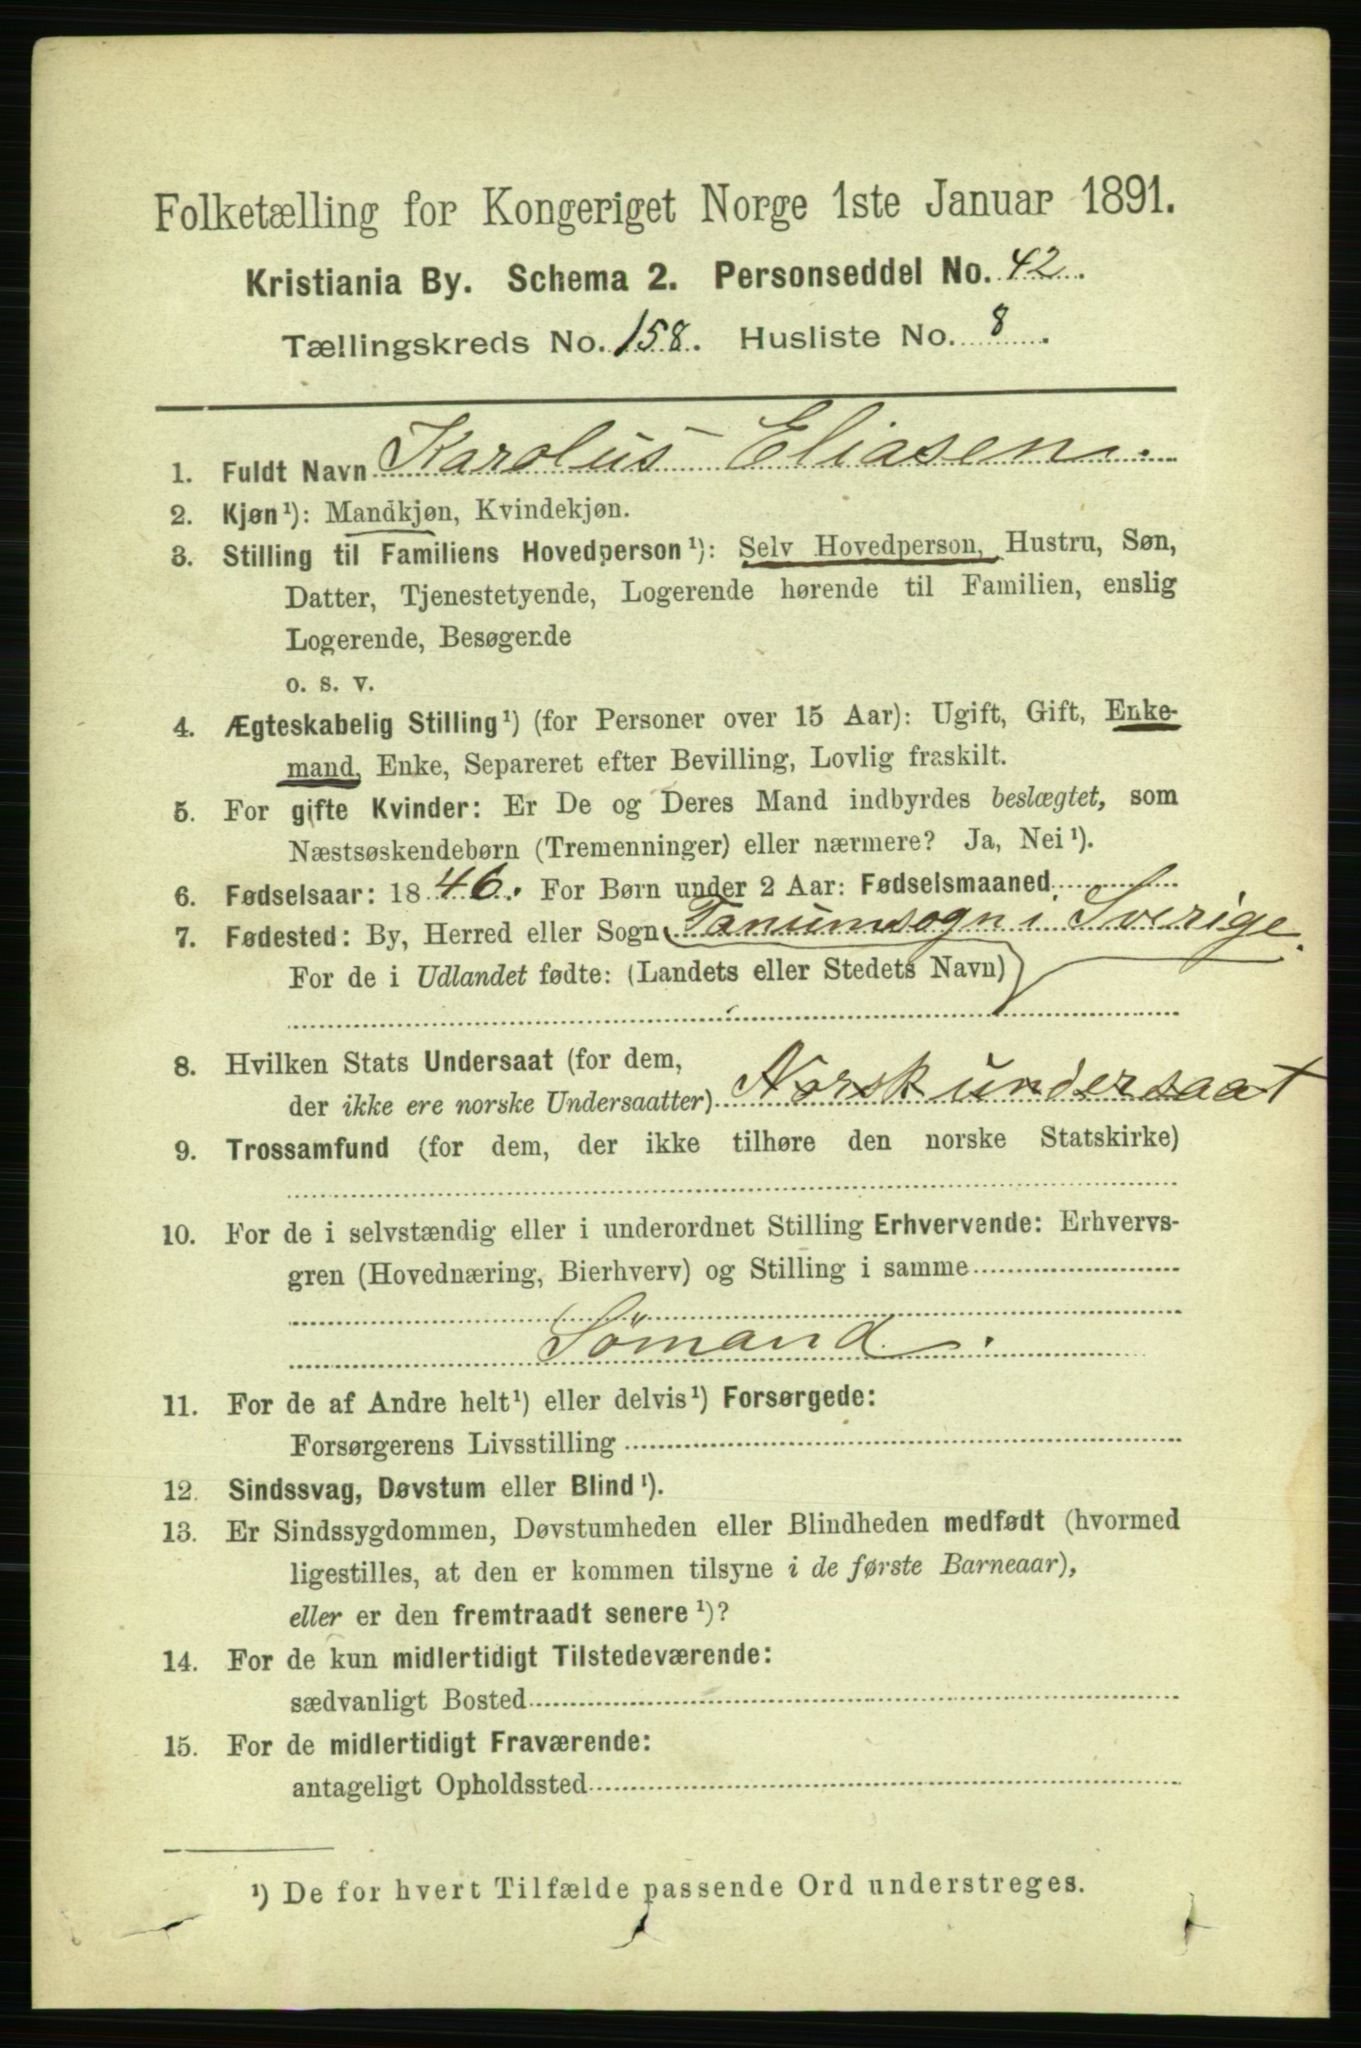 Folketælling for Kongeriget Norge 1ste Januar 1891.
Kristiania By. Schema 2. Personseddel No. 42.
Tællingskreds No. 158. Husliste No. 8.
1. Fuldt Navn Karolus Eliasen.
2. Kjøn¹): Mandkjøn, Kvindekjøn.
3. Stilling til Familiens Hovedperson¹): Selv Hovedperson, Hustru, Søn,
Datter, Tjenestetyende, Logerende hørende til Familien, enslig
Logerende, Besøgende
o. s. v.
4. Ægteskabelig Stilling¹) (for Personer over 15 Aar): Ugift, Gift, Enke-
mand, Enke, Separeret efter Bevilling, Lovlig fraskilt.
5. For gifte Kvinder: Er De og Deres Mand indbyrdes beslægtet, som
Næstsøskendebørn (Tremenninger) eller nærmere? Ja, Nei¹).
6. Fødselsaar: 1846. For Børn under 2 Aar: Fødselsmaaned
7. Fødested: By, Herred eller Sogn Tanumsogn i Sverige.
For de i Udlandet fødte: (Landets eller Stedets Navn)
8. Hvilken Stats Undersaat (for dem,
der ikke ere norske Undersaatter) Norsk undersaat
9. Trossamfund (for dem, der ikke tilhøre den norske Statskirke)
10. For de i selvstændig eller i underordnet Stilling Erhvervende: Erhvervs-
gren (Hovednæring, Bierhverv) og Stilling i samme
Sömand.
11. For de af Andre helt¹) eller delvis¹) Forsørgede:
Forsørgerens Livsstilling
12. Sindssvag, Døvstum eller Blind¹).
13. Er Sindssygdommen, Døvstumheden eller Blindheden medfødt (hvormed
ligestilles, at den er kommen tilsyne i de første Barneaar),
eller er den fremtraadt senere¹)?
14. For de kun midlertidigt Tilstedeværende:
sædvanligt Bosted
15. For de midlertidigt Fraværende:
antageligt Opholdssted
¹) De for hvert Tilfælde passende Ord understreges.